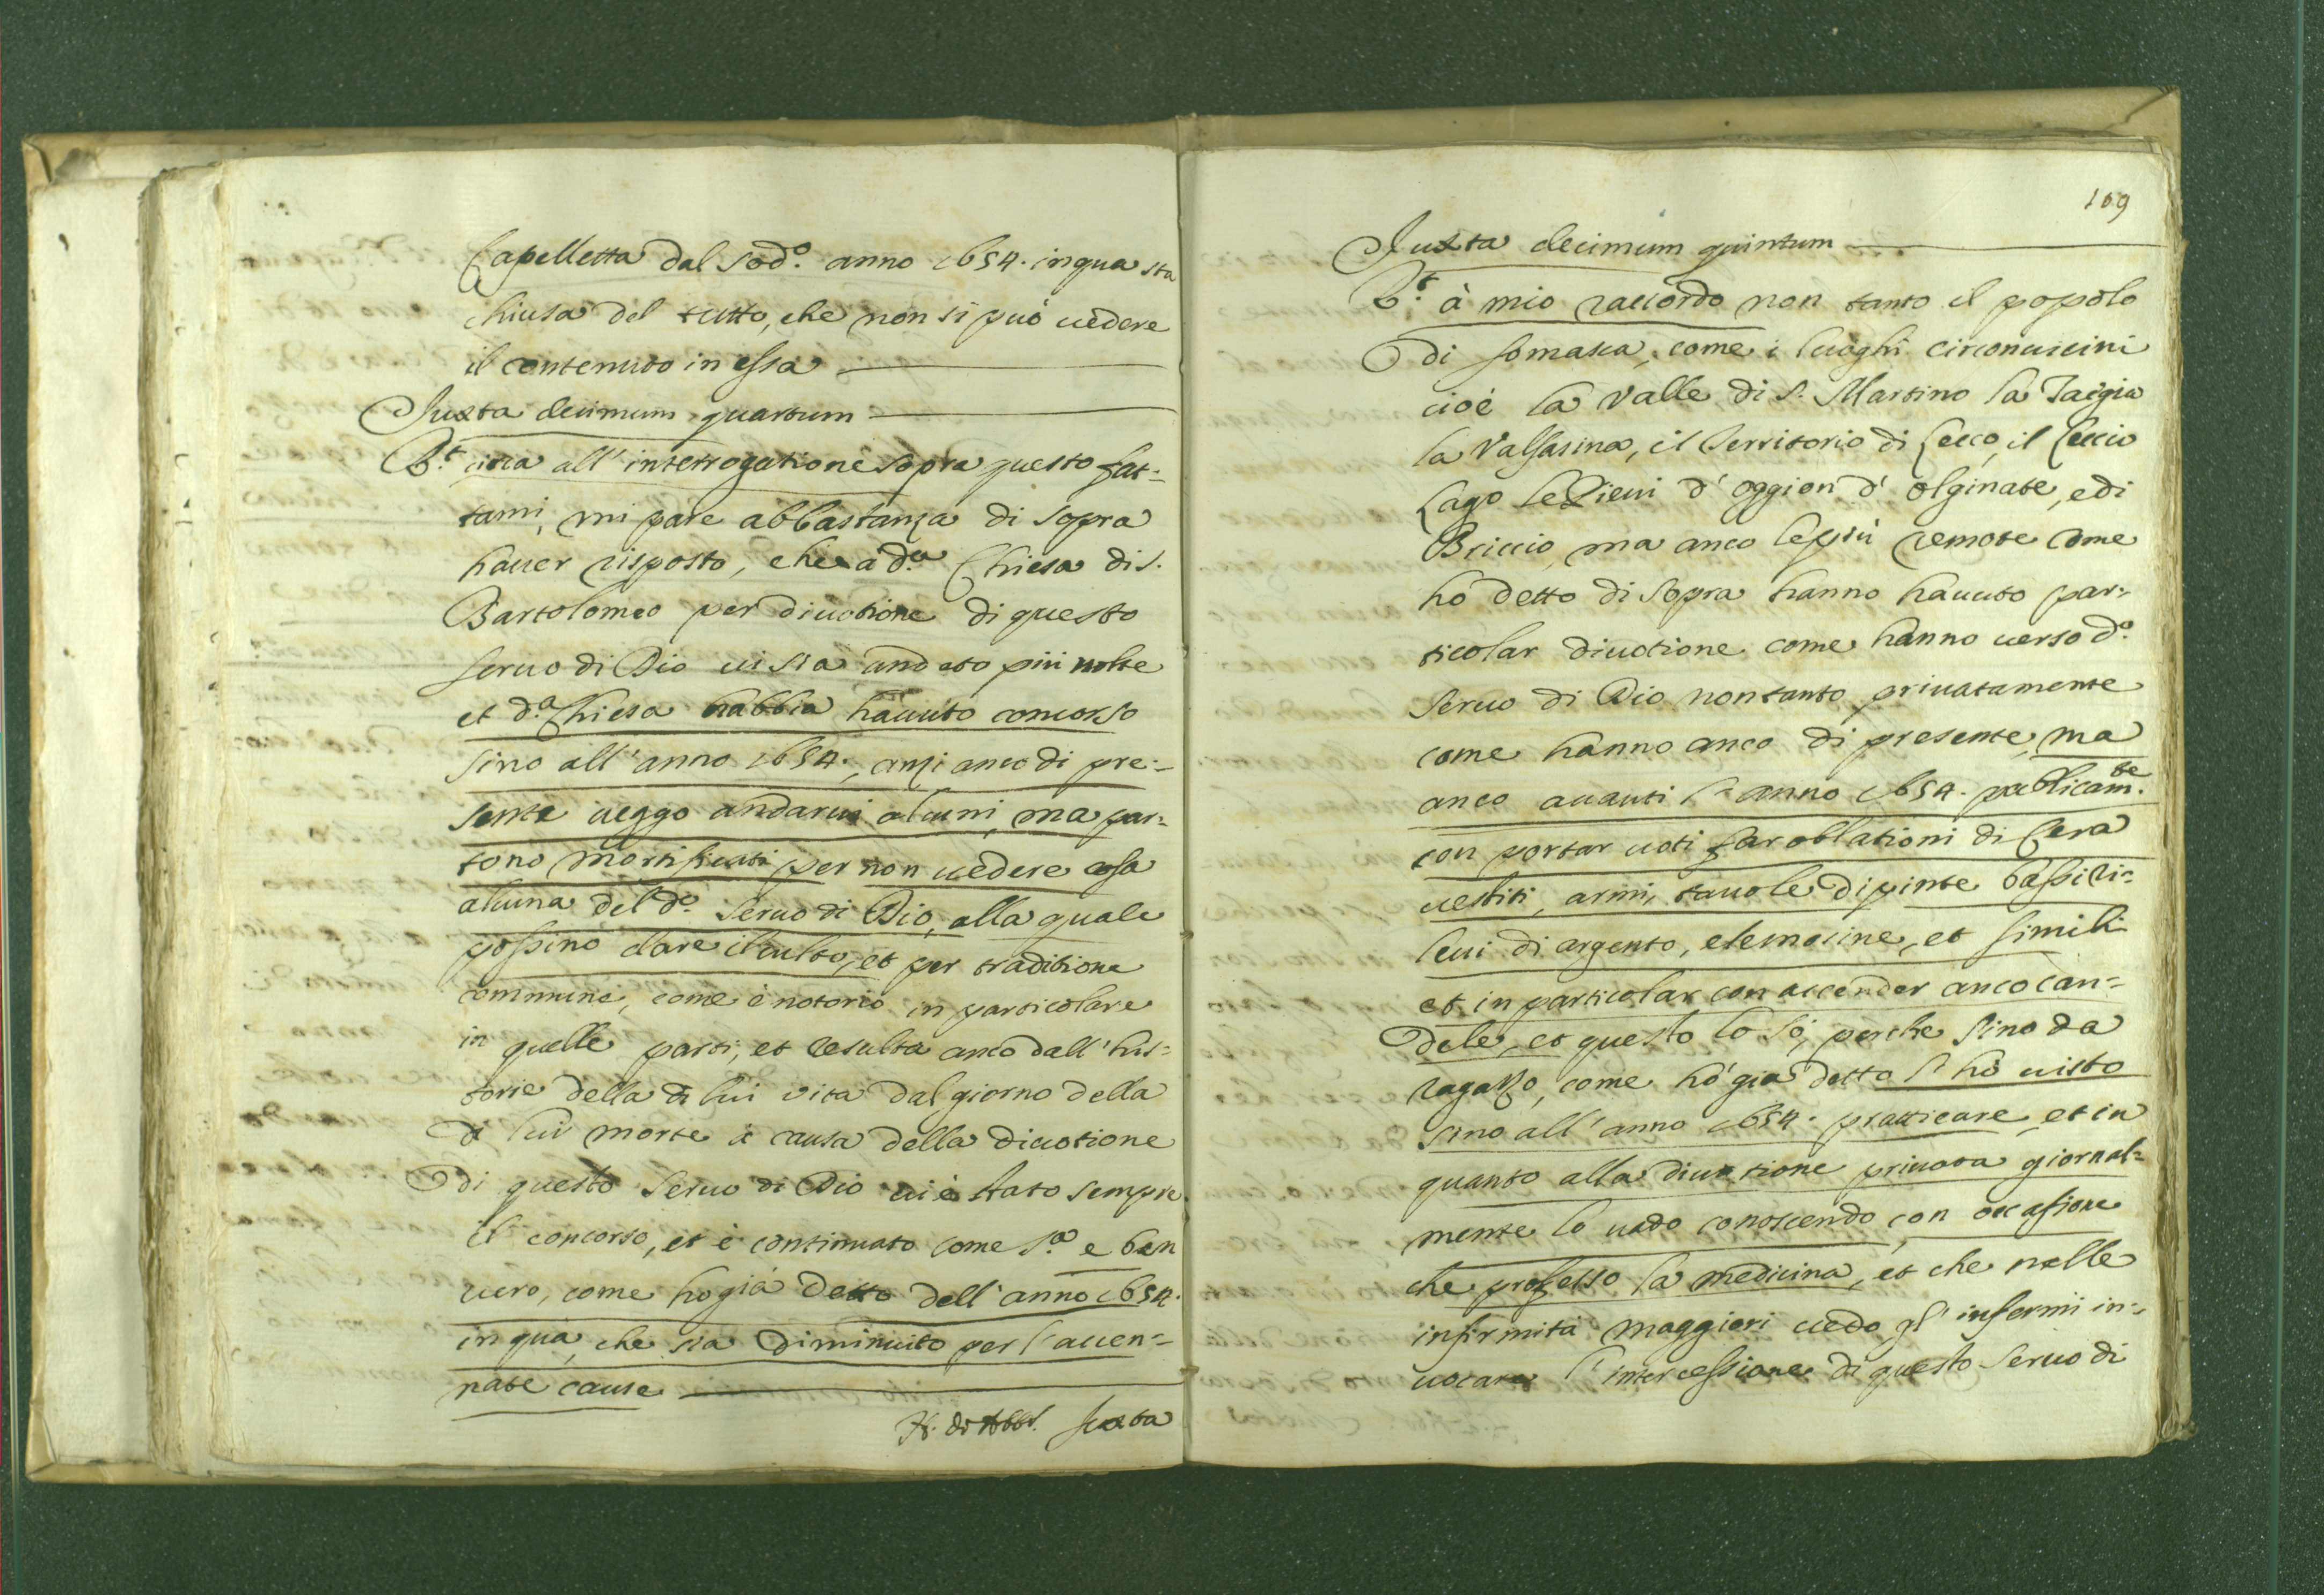 Capelletta dal sod.o anno 1654. in qua sta
chiusa del tutto, che non si può uedere
il contenuto in essa
Juxta decimum quartum
R.t circa all' interrogatione sopra questo fat-
tami, mi pare abbastanza di sopra
hauer risposto, che à d.a Chiesa di S.
Bartolomeo per diuotione di questo
seruo di Dio ui sia andato più uolte
et d.a Chiesa habbia hauuto concorso
sino all' anno 1654., anzi anco di pre-
sente ueggo andarui alcuni, ma par-
tono mortificati per non uedere cosa
alcuna del d.o Seruo di Dio, alla quale
possino dare il culto, et per traditione
commune, come è notorio in particolare
in quelle parti, et resulta anco dall' his-
torie della di lui uita dal giorno della
di lui morte à causa della diuotione
di questo Seruo di Dio ui è stato sempre
il concorso, et è continuato come s.a e ben
uero, come ho già detto dell' anno 1654.
in qua, che sia diminuito per l' accen-
nate cause
Juxta
169
Juxta decimum quintum
R.t à mio raccordo non tanto il popolo
di Somasca, come i luoghi circonuicini
cioè la Valle di S. Martino la
la Valsasina, il Territorio di Lecco, il
Lago le Pieui d' Oggion d' Olginate, e di
Briuio, ma anco le più remote come
hò detto di sopra hanno hauuto par-
ticolar diuotione come hanno uerso d.o
Seruo di Dio non tanto priuatamente
come hanno anco di presente, ma
anco auanti l' anno 1654. publicam.te
con portar uoti far oblationi di Cera
uestiti, armi, tauole dipinte bassi ri-
leui di argento, elemosine, et simili
et in particolar con accender anco can-
dele, et questo lo sò, perche sino da
ragazzo, come hò già detto l' hò uisto
sino all' anno 1654. pratticare, et in
quanto alla diuotione priuata giornal-
mente lo uado conoscendo, con occasione
che professo la medicina, et che nelle
infirmità maggiori uedo gl' infermi in-
uocare l' intercessione di questo Seruo di